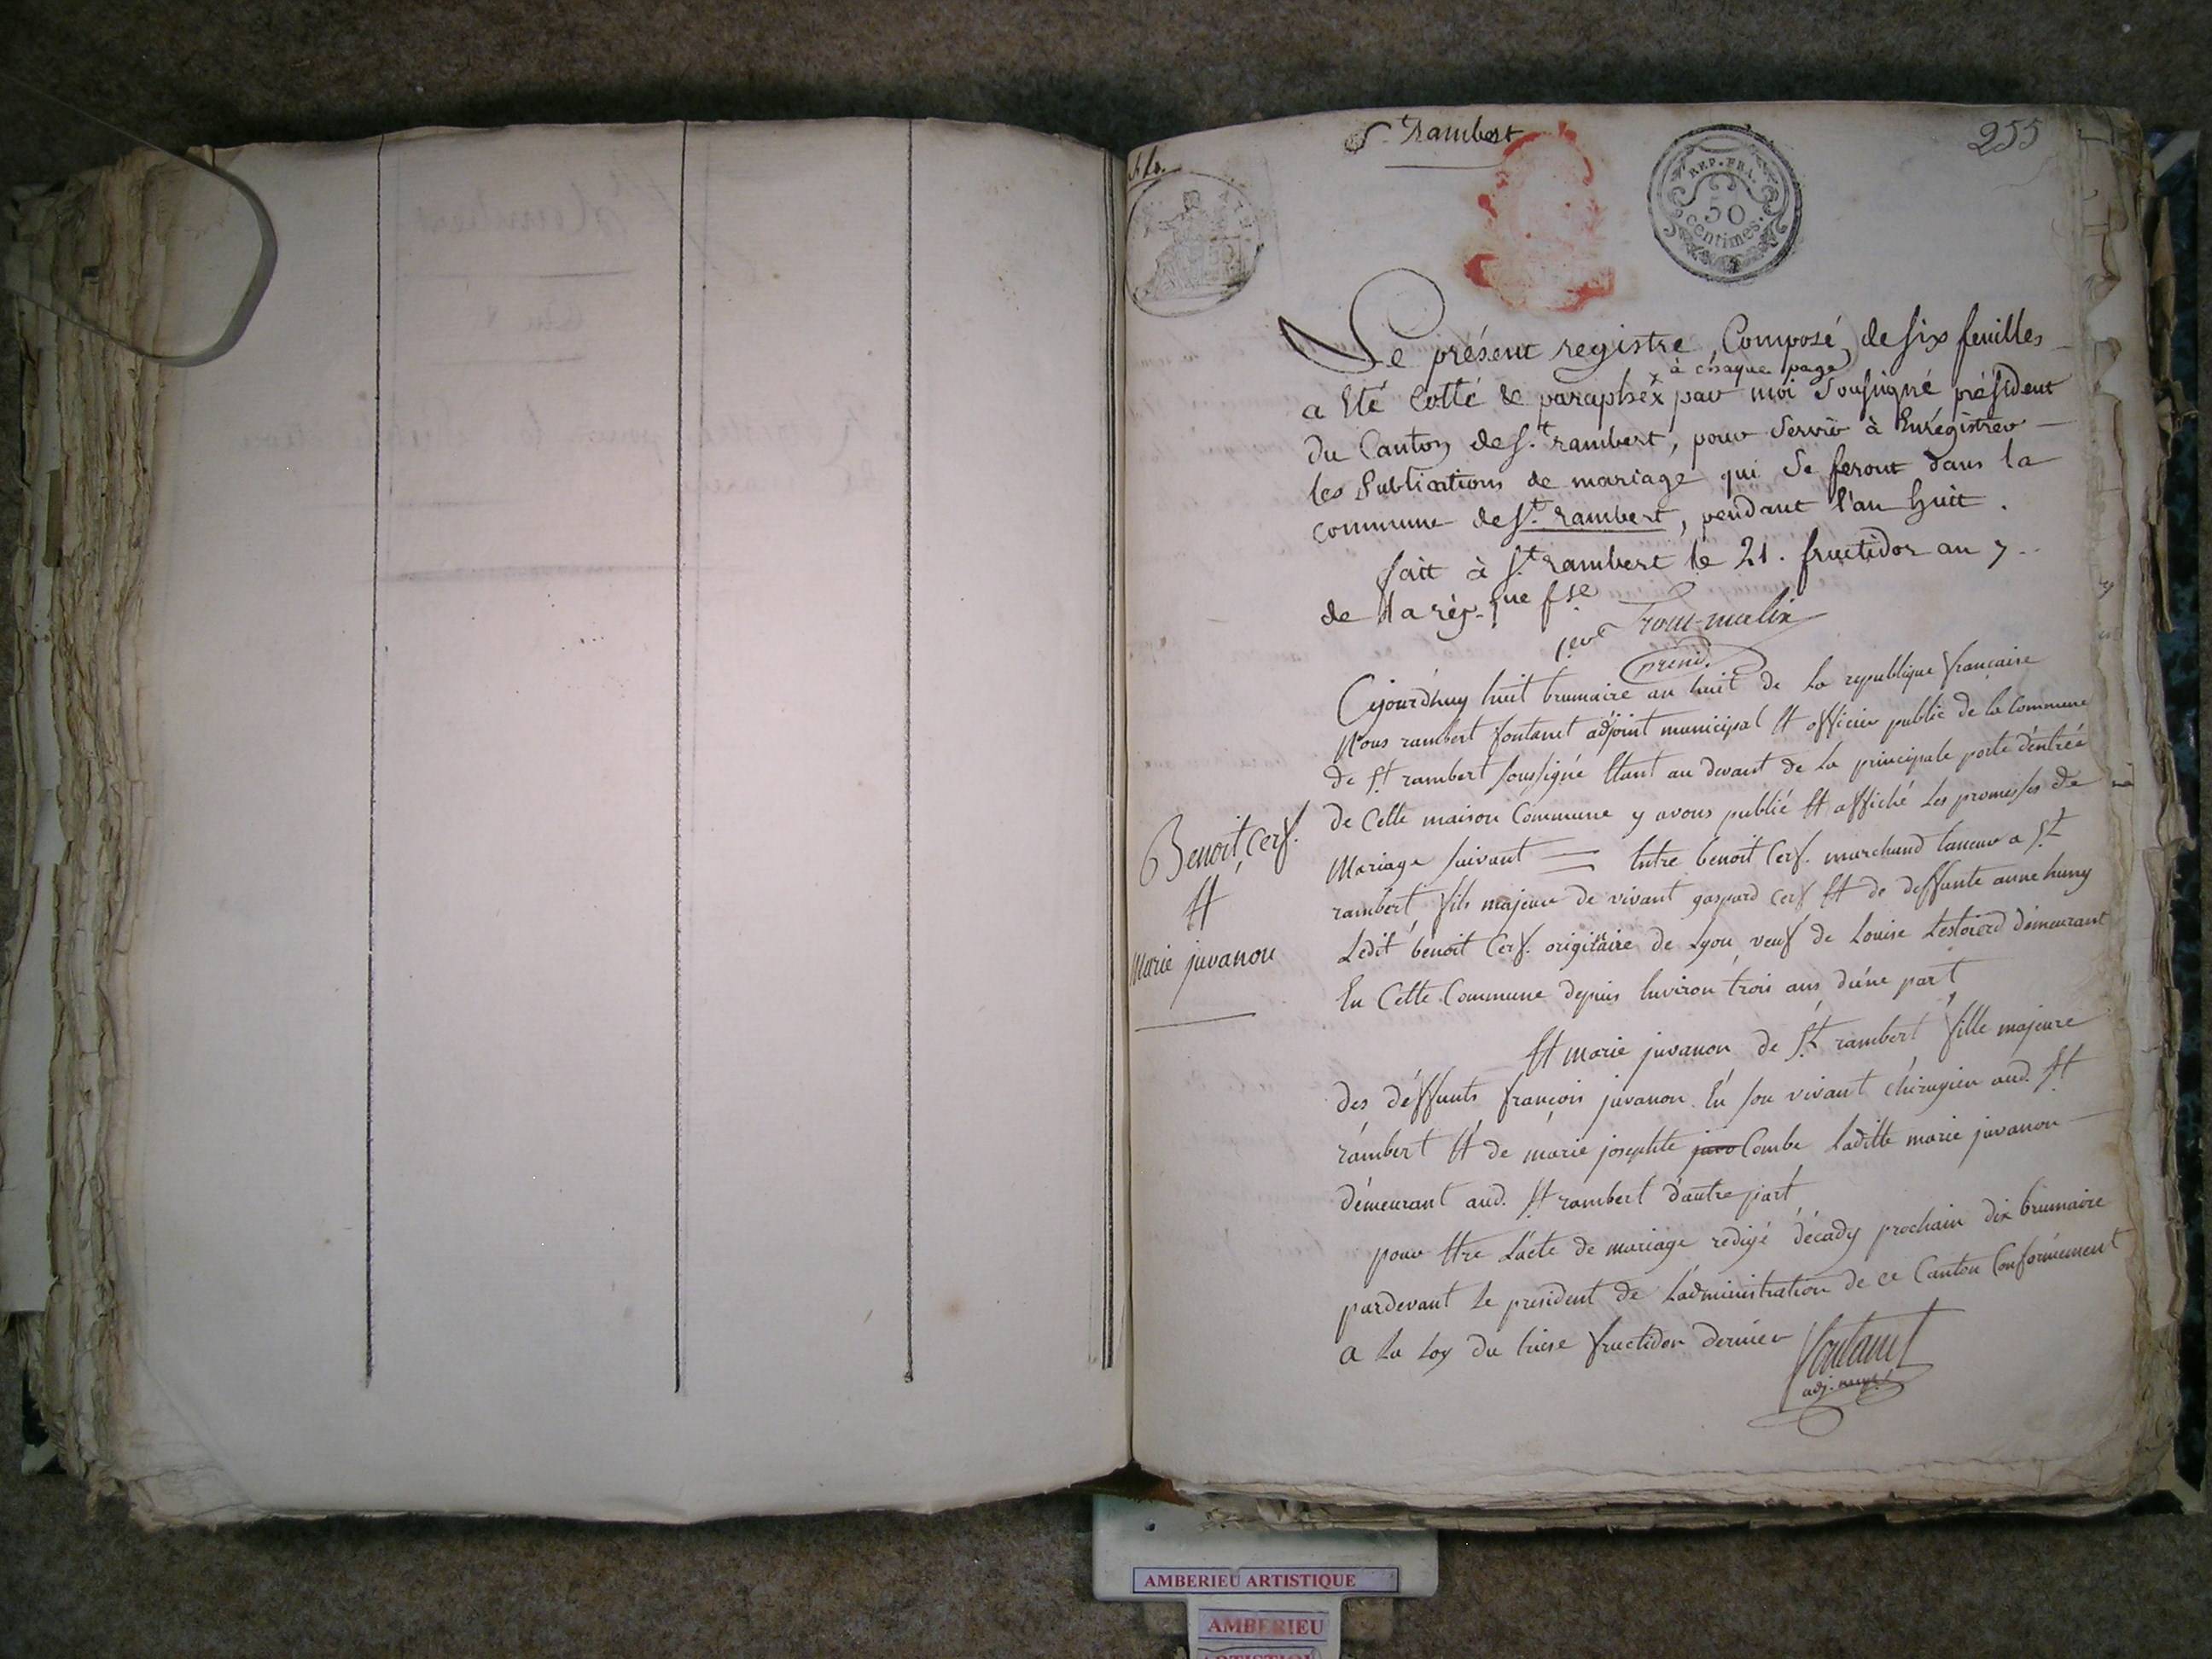 St. Rambert
255
REP. FRA.
50
Centimes.
Le présent registre, Composé de six feuilles
à chaque page
a Eté Cotté & paraphé x par moi Soussigné président
du Canton de St. rambert, pour Servir à Enrégistrer
les Publications de mariage qui Se feront dans la
commune de St. rambert, pendant l'an huit.
fait à St. rambert le 21. fructidor an 7.
de la rép.que fse
Trocu-mulin
présid.
Cejourdhuy huit brumaire an huit de La republique française
Nous rambert fontanet adjoint municipal Et officier public de la Commune
de St rambert soussigné Etant au devant de La principale porte d'entrée
de Cette maison Commune y avons publié Et affiché Les promesses de
Mariage suivant = Entre benoit Cerf. marchand taneur a St
rambert, fils majeur de vivant gaspard Cerf Et de deffunte anne huny
Ledit benoit Cerf. origitaire de Lyon veuf de Louise Lestoierd démeurant
En Cette Commune depuis Environ trois ans d'une part
Benoit, Cerf.
Et
Marie juvanon
Et marie juvanon de St rambert fille majeure
des déffunts françois juvanon En son vivant chirugien aud. St
rambert Et de marie josephte Combe Laditte marie juvanon
démeurant aud. St rambert d'autre part
pour Etre L'acte de mariage redigé décady prochain dix brumaire
pardevant Le president de L'administration de ce Canton Conformément
a La Loy du treise fructidor dernier
fontanet
adj. mupl
AMBERIEU ARTISTIQUE
AMBERIEU
ARTISTIQUE